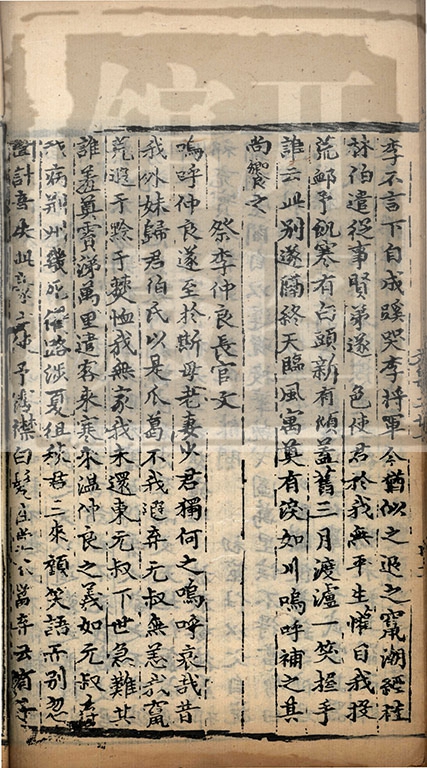 李不言下自成蹊哭李將軍今猶似之退之竄潮經程
林伯遣從事賢弟遂 色使君於我無平生懽自我投
荒卹予飢寒有白頭新有傾蓋舊三月渡瀘一笑握手
誰云此别遂爾終天臨風寓奠有淚如川嗚呼補之其
尚饗之
祭李仲良長官文
嗚呼仲良遂至於斯母老妻少君獨何之嗚呼哀哉昔
我外妹歸君伯氏以是瓜葛不我遐弃元叔無恙我竄
荒遐于黔于僰恤我無家我未還東元叔下世急難其
誰羞奠賓涕萬里遣客來寒來温仲良之義如元叔存
我病荆州幾死催路涉夏徂秋君三來顧笑語而别忽